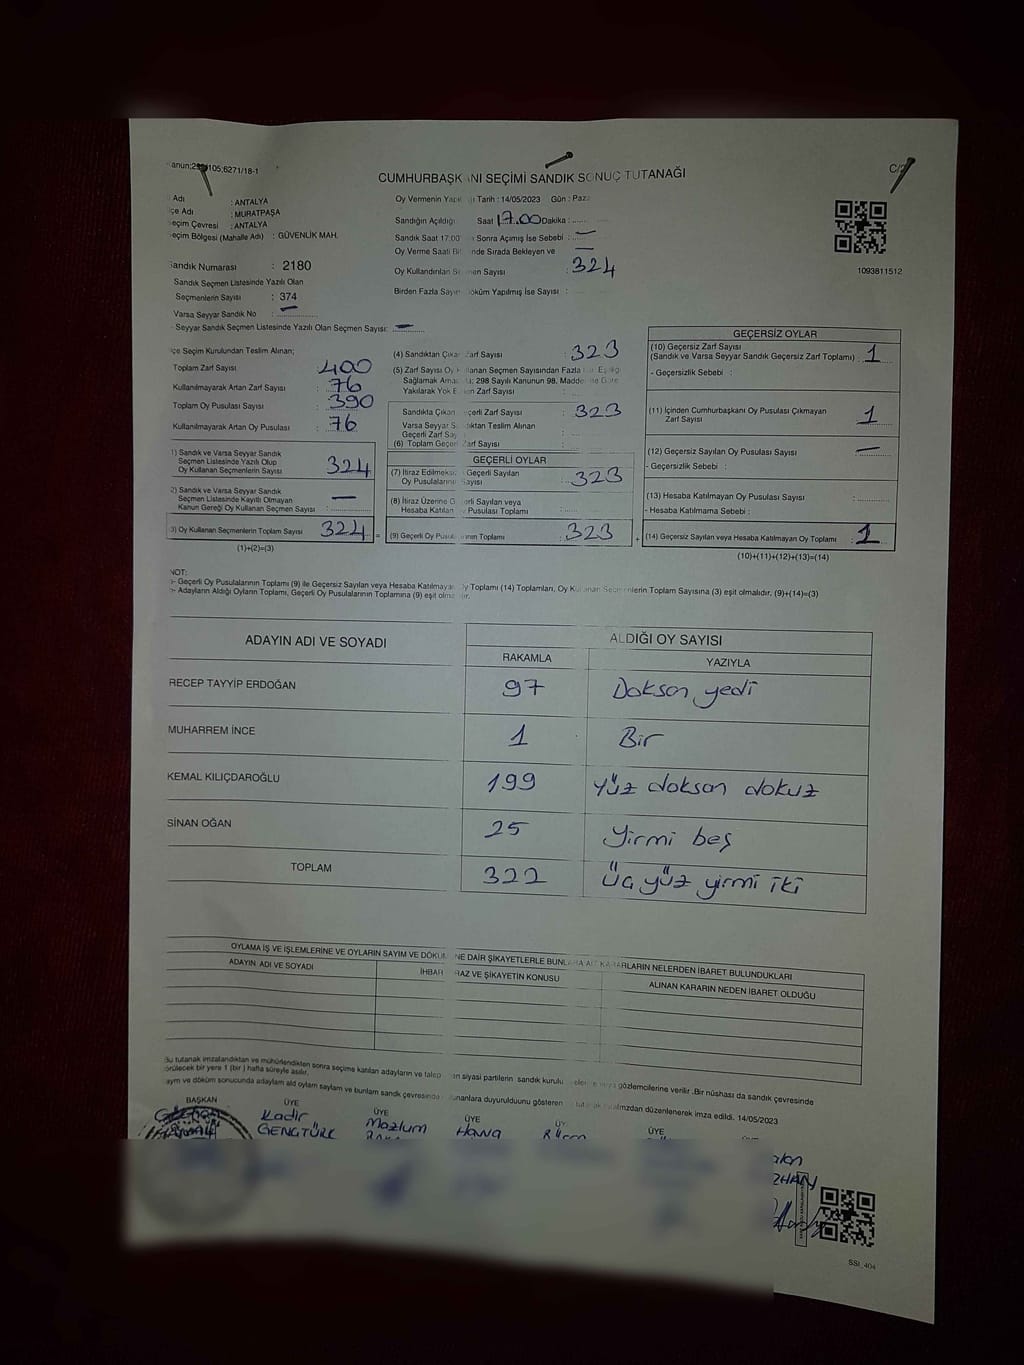 CUMHURBAŞK NI SEÇİMİ SANDIK SONUÇ TUTANAĞI
Adı : ANTALYA
çe Adı : MURATPAŞA
eçim Çevresi : ANTALYA
eçim Bölgesi (Mahalle Adı) : GÜVENLİK MAH.
Sandık Numarası : 2180
Sandık Seçmen Listesinde Yazılı Olan
Seçmenlerin Sayısı : 374
Varsa Seyyar Sandık No : —
Seyyar Sandık Seçmen Listesinde Yazılı Olan Seçmen Sayısı: —
Oy Vermenin Yapı Tarih : 14/05/2023 Gün : Paz
Sandığın Açıldığı Saat 17.00 Dakika :
Sandık Saat 17.00 Sonra Açımış İse Sebebi : —
Oy Verme Saati Bi nde Sırada Bekleyen ve —
Oy Kullandırılan Se men Sayısı : 324
Birden Fazla Sayım Döküm Yapılmış İse Sayısı :
1093811512
çe Seçim Kurulundan Teslim Alınan;
Toplam Zarf Sayısı : 400
Kullanılmayarak Artan Zarf Sayısı : 76
Toplam Oy Pusulası Sayısı : 390
Kullanılmayarak Artan Oy Pusulası : 76
1) Sandık ve Varsa Seyyar Sandık
Seçmen Listesinde Yazılı Olup
Oy Kullanan Seçmenlerin Sayısı : 324
2) Sandık ve Varsa Seyyar Sandık
Seçmen Listesinde Kayıtlı Olmayan
Kanun Gereği Oy Kullanan Seçmen Sayısı : —
3) Oy Kullanan Seçmenlerin Toplam Sayısı 324 =
(1)+(2)=(3)
(4) Sandıktan Çıkan Zarf Sayısı : 323
(5) Zarf Sayısı Oy Kullanan Seçmen Sayısından Fazla
Sağlamak Ama 298 Sayılı Kanunun 98. Madde
Yakılarak Yok E en Zarf Sayısı :
Sandıkta Çıkan eçerli Zarf Sayısı : 323
Varsa Seyyar S dıktan Teslim Alınan
Geçerli Zarf Say
(6) Toplam Geçer Zarf Sayısı :
GEÇERLİ OYLAR
(7) İtiraz Edilmeksi Geçerli Sayılan
Oy Pusulaların Sayısı : 323
(8) İtiraz Üzerine G erli Sayılan veya
Hesaba Katılan Pusulası Toplamı :
(9) Geçerli Oy Pusul rının Toplamı : 323 +
GEÇERSİZ OYLAR
(10) Geçersiz Zarf Sayısı
(Sandık ve Varsa Seyyar Sandık Geçersiz Zarf Toplamı) : 1
- Geçersizlik Sebebi :
(11) İçinden Cumhurbaşkanı Oy Pusulası Çıkmayan
Zarf Sayısı : 1
(12) Geçersiz Sayılan Oy Pusulası Sayısı : —
- Geçersizlik Sebebi :
(13) Hesaba Katılmayan Oy Pusulası Sayısı :
- Hesaba Katılmama Sebebi :
(14) Geçersiz Sayılan veya Hesaba Katılmayan Oy Toplamı : 1
(10)+(11)+(12)+(13)=(14)
NOT:
Geçerli Oy Pusulalarının Toplamı (9) ile Geçersiz Sayılan veya Hesaba Katılmayan Oy Toplamı (14) Toplamları, Oy Kullanan Seçmenlerin Toplam Sayısına (3) eşit olmalıdır. (9)+(14)=(3)
Adayların Aldığı Oyların Toplamı, Geçerli Oy Pusulalarının Toplamına (9) eşit olma ır.
ADAYIN ADI VE SOYADI ALDIĞI OY SAYISI
RAKAMLA YAZIYLA
RECEP TAYYİP ERDOĞAN 97 Doksan yedi
MUHARREM İNCE 1 Bir
KEMAL KILIÇDAROĞLU 199 Yüz doksan dokuz
SİNAN OĞAN 25 Yirmi beş
TOPLAM 322 Üç yüz yirmi iki
OYLAMA İŞ VE İŞLEMLERİNE VE OYLARIN SAYIM VE DÖKÜM NE DAİR ŞİKAYETLERLE BUNLARA AİT KARARLARIN NELERDEN İBARET BULUNDUKLARI
ADAYIN ADI VE SOYADI İHBAR RAZ VE ŞİKAYETİN KONUSU ALINAN KARARIN NEDEN İBARET OLDUĞU
Bu tutanak imzalandıktan ve mühürlendikten sonra seçime katılan adayların ve talep en siyasi partilerin sandık kurulu gözlemcilerine verilir .Bir nüshası da sandık çevresinde
örülecek bir yere 1 (bir ) hafta süreyle asılır.
ayım ve döküm sonucunda adayların ald oyların sayılarn ve bunların sandık çevresinde unanlara duyurulduunu gösteren tutanak düzenlenerek imza edildi. 14/05/2023
BAŞKAN ÜYE ÜYE ÜYE ÜYE
Gökhan Kadir Mazlum Hava
GENÇTÜRK
SSI_404